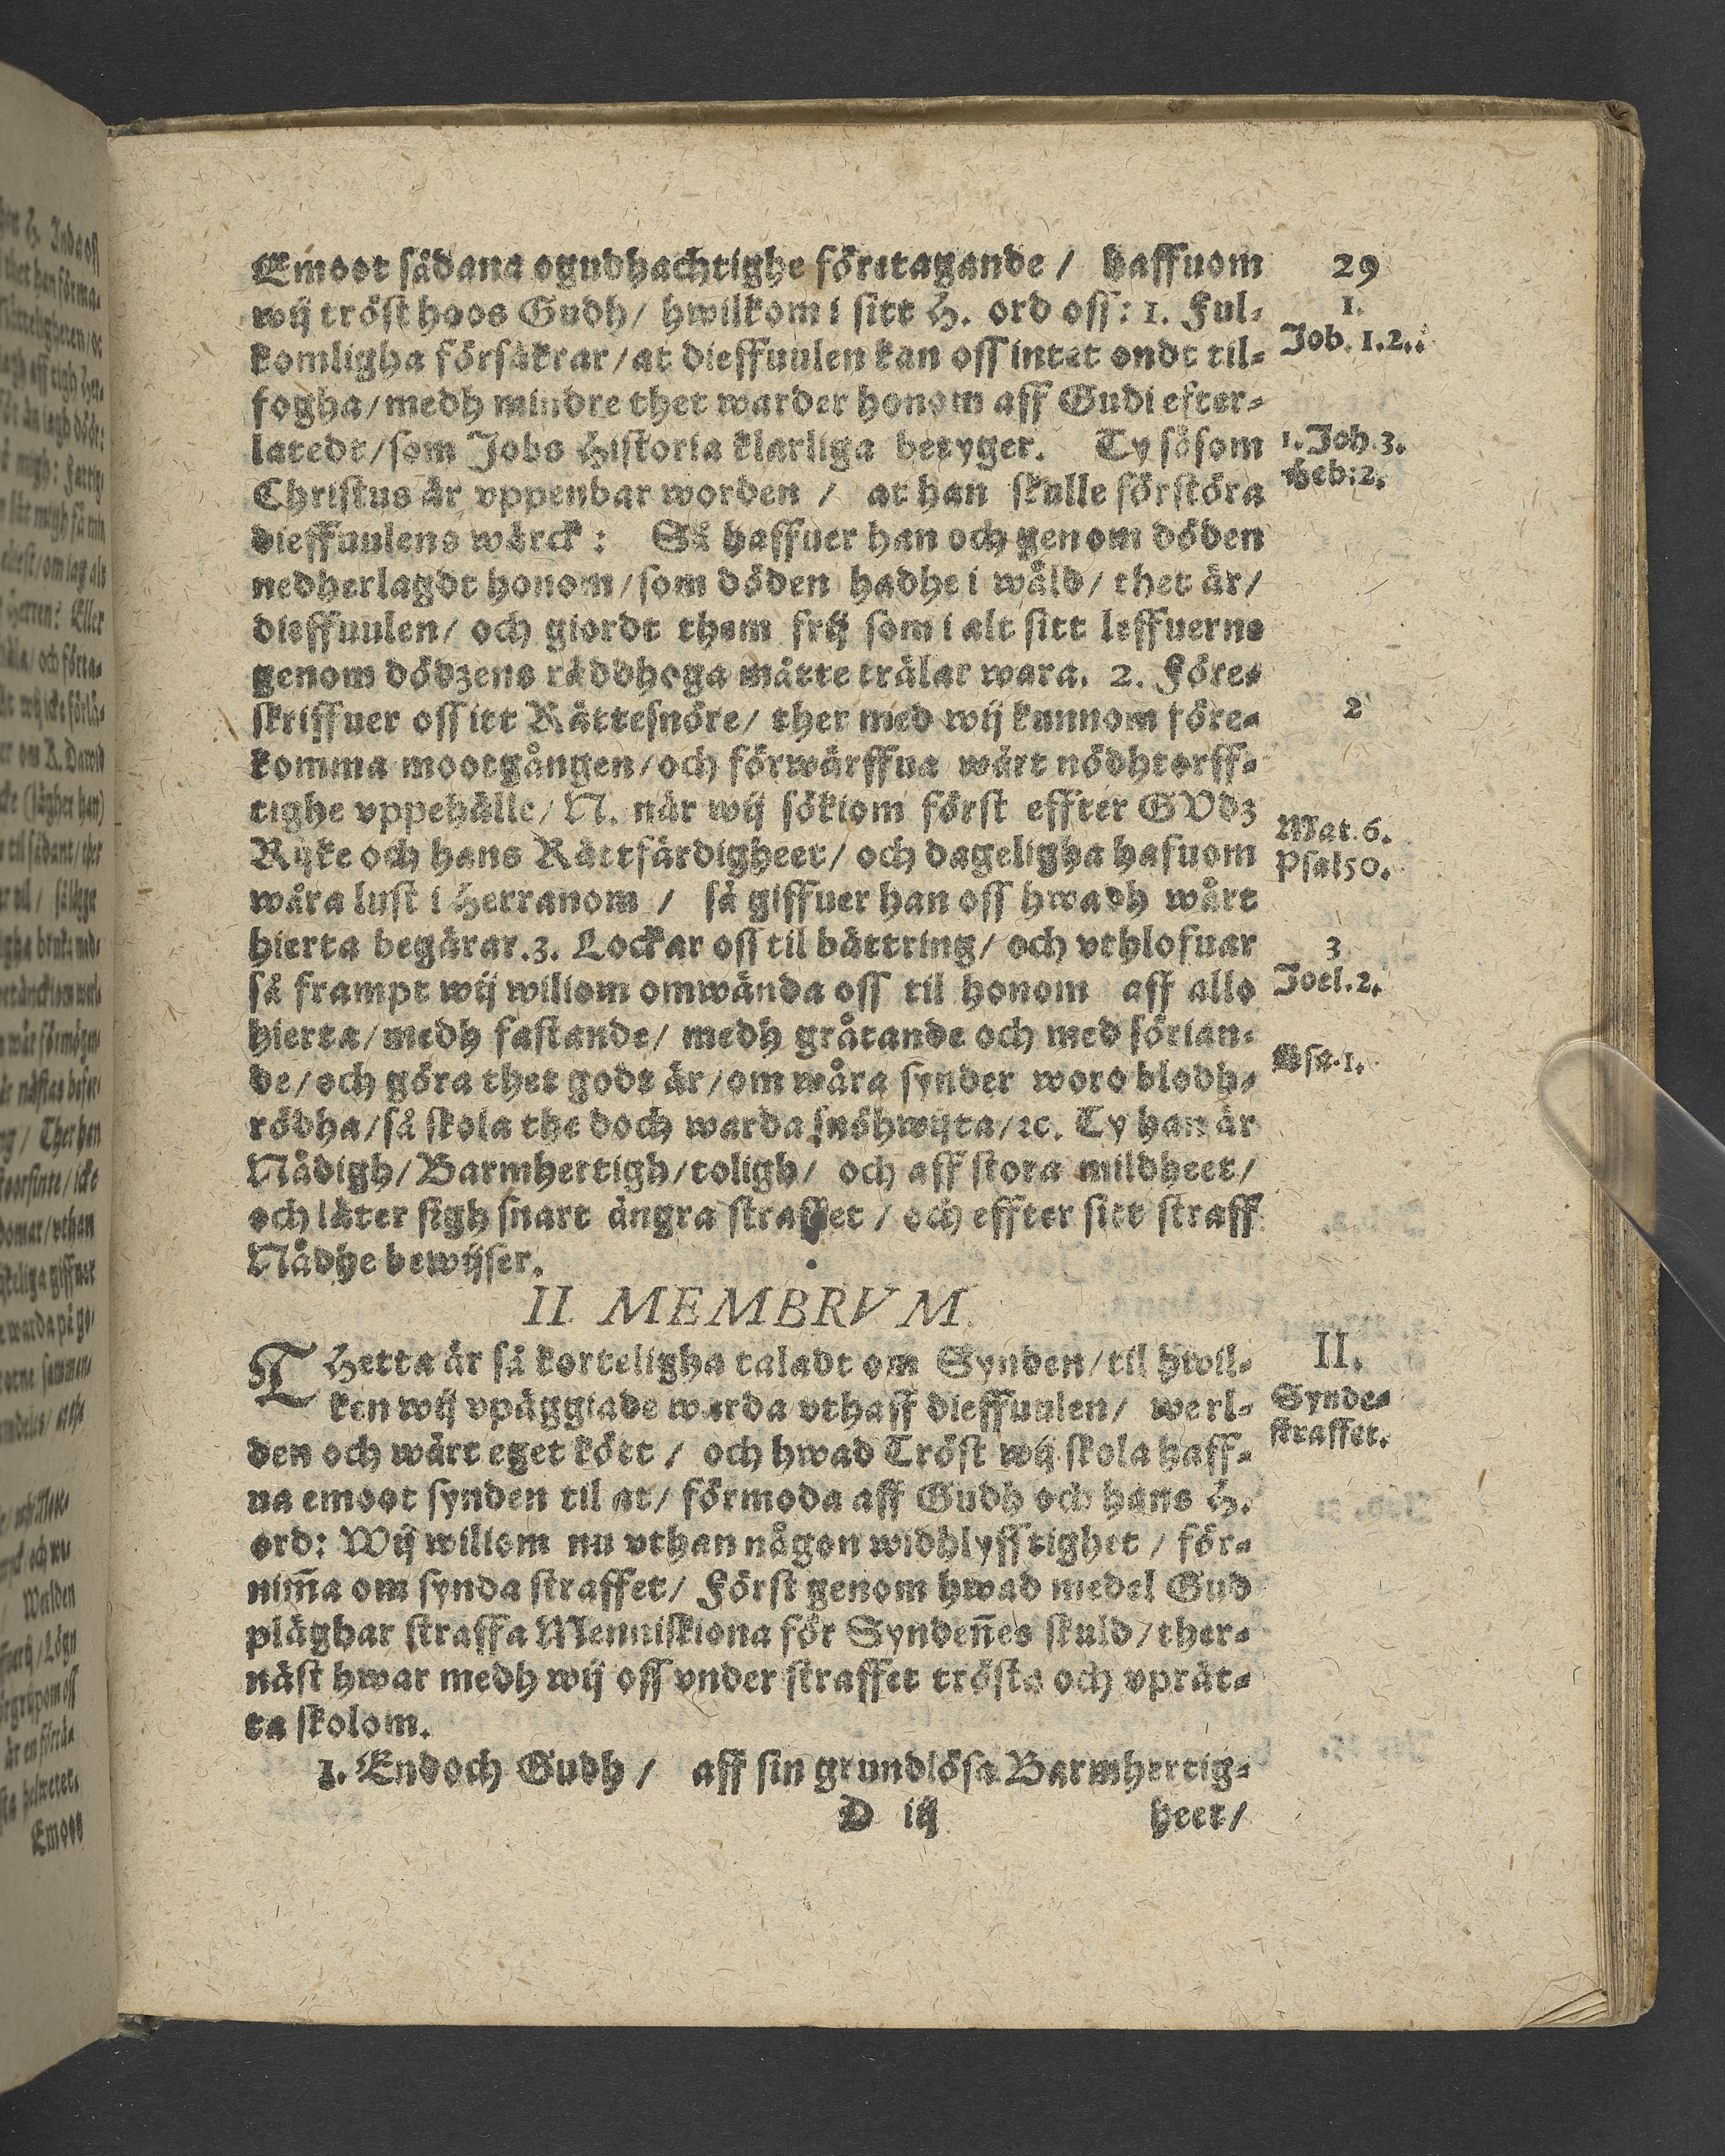 Emoot sådana ogudhachtighe företagande / haffuom
29
wij tröst hoos Gudh/ hwilkom i sitt H. ord oss: 1. Ful-
1.
komligha försäkrar/at dieffuulen kan oss intet ondt til-
Job. 1.2..
fogha/medh mindre thet warder honom aff Gudi efter-
latedt/som Jobs Historia klarliga betyger. Ty såsom
1. Joh.3.
Christus är vppenbar worden / at han skulle förstöra
Heb:2.
dieffuulens wärck: Så haffuer han och genom döden
nedherlagdt honom/som döden hadhe i wåld/ thet är/
dieffuulen/ och giordt them frij som i alt sitt leffuerne
genom dödzens räddhoga måtte trälar wara. 2. Före-
skriffuer oss itt Rättesnöre/ ther med wij kunnom före-
2
komma mootgången/och förwärffua wårt nödhtorff-
tighe vppehälle/ N. när wij sökiom först effter GVdz
Mat.6.
Rijke och hans Rättfärdigheet/ och dageligha hafuom
Psal50.
wåra lust i Herranom / så giffuer han oss hwadh wårt
hierta begärar.3. Lockar oss til bättring/ och vthlofuar
3
så frampt wij wiliom omwända oss til honom aff allo
Joel.2.
hierta/medh fastande/ medh gråtande och med sörian-
de/och göra thet godt är/om wåra synder woro blodh-
Esa.1.
rödha/så skola the doch warda snöhwijta/ꝛc. Ty han är
Nådigh/Barmhertigh/toligh/ och aff stora mildheet/
och låter sigh snart ångra straffet / och effter sitt straff
Nådhe bewijser.
II. MEMBRVM.
THetta är så korteligha taladt om Synden/til hwil-
II.
ken wij vpäggiade warda vthaff dieffuulen/ werl-
Synde-
den och wårt eget kött / och hwad Tröst wij skola haff-
straffet.
ua emoot synden til at/ förmoda aff Gudh och hans H.
ord: Wij wiliom nu vthan någon widhlyfftighet / för-
nim̃a om synda straffet/ Först genom hwad medel Gud
plägbar straffa Menniskiona för Synden̄es skuld/ther-
näst hwar medh wij oss vnder straffet trösta och vprät-
ta skolom.
1. Endoch Gudh / aff sin grundlösa Barmhertig-
D iij
heet/